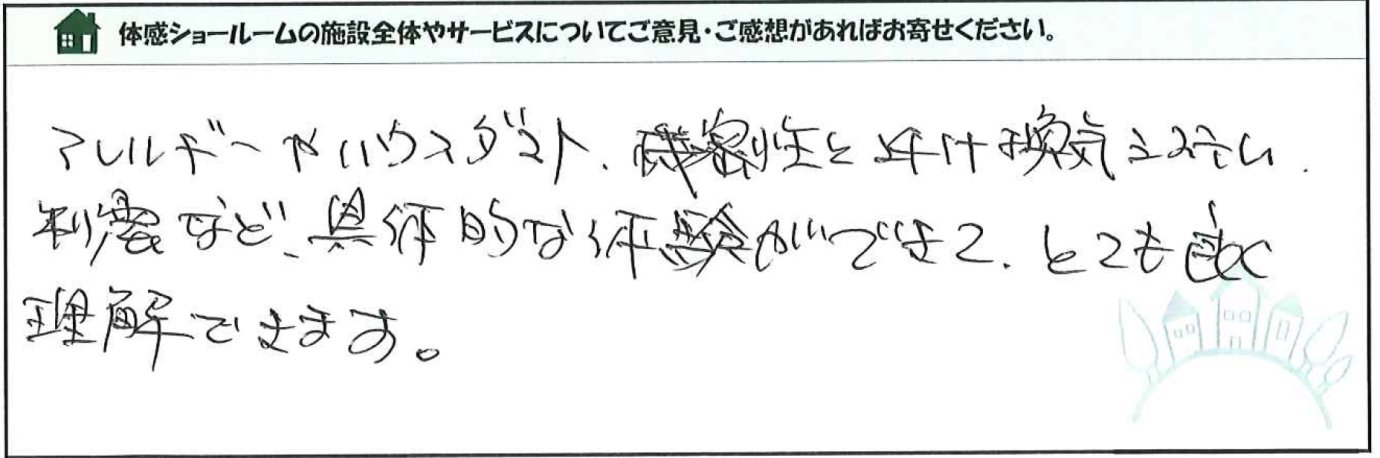 体感ショールームの施設全体やサービスについてご意見・ご感想があればお寄せください。
アレルギーやハウスダスト、機密性と 換気システム、
制震など、具体的な体験ができて、とても良く
理解できます。